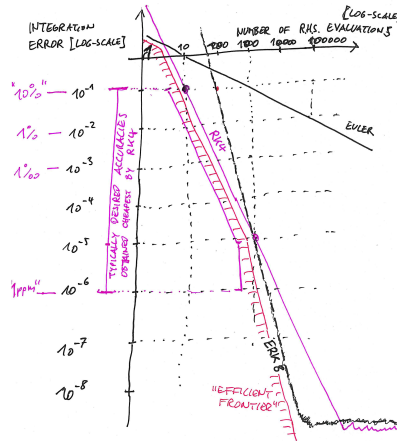 [LOG-SCALE]
INTEGRATION
ERROR [LOG-SCALE]
NUMBER OF RHS. EVALUATIONS
10 100 1000 10000 100000
"10%" — 10⁻¹
1% — 10⁻²
1‰ — 10⁻³
10⁻⁴
10⁻⁵
"1ppm" — 10⁻⁶
10⁻⁷
10⁻⁸
TYPICALLY DESIRED ACCURACIES
OBTAINED CHEAPEST BY RK4
RK4
EULER
ERK8
"EFFICIENT
FRONTIER"